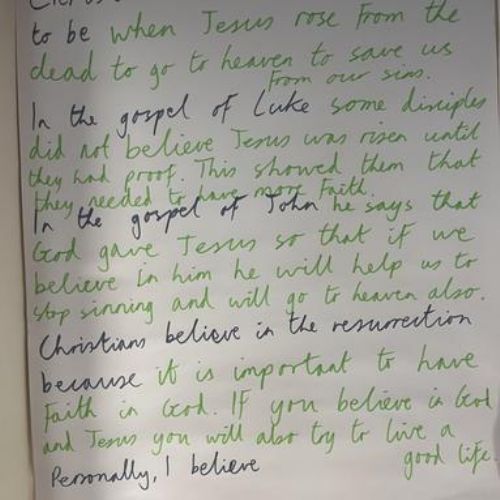 to be when Jesus rose from the
dead to go to heaven to save us
from our sins.
In the gospel of Luke some disciples
did not believe Jesus was risen until
they had proof. This showed them that
they needed to have more Faith.
In the gospel of John he says that
God gave Jesus so that if we
believe in him he will help us to
stop sinning and will go to heaven also.
Christians believe in the resurrection
because it is important to have
Faith in God. If you believe in God
and Jesus you will also try to live a
good life.
Personally, I believe